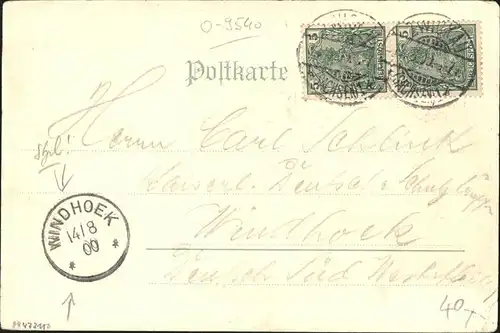 O-9540
Postkarte
5 5
Stpl!
Herrn Carl Schlink
Kaiserl. Deutsche Schutztruppe
Windhoek
Deutsch Süd West
WINDHOEK
14/8
00
* *
40,-